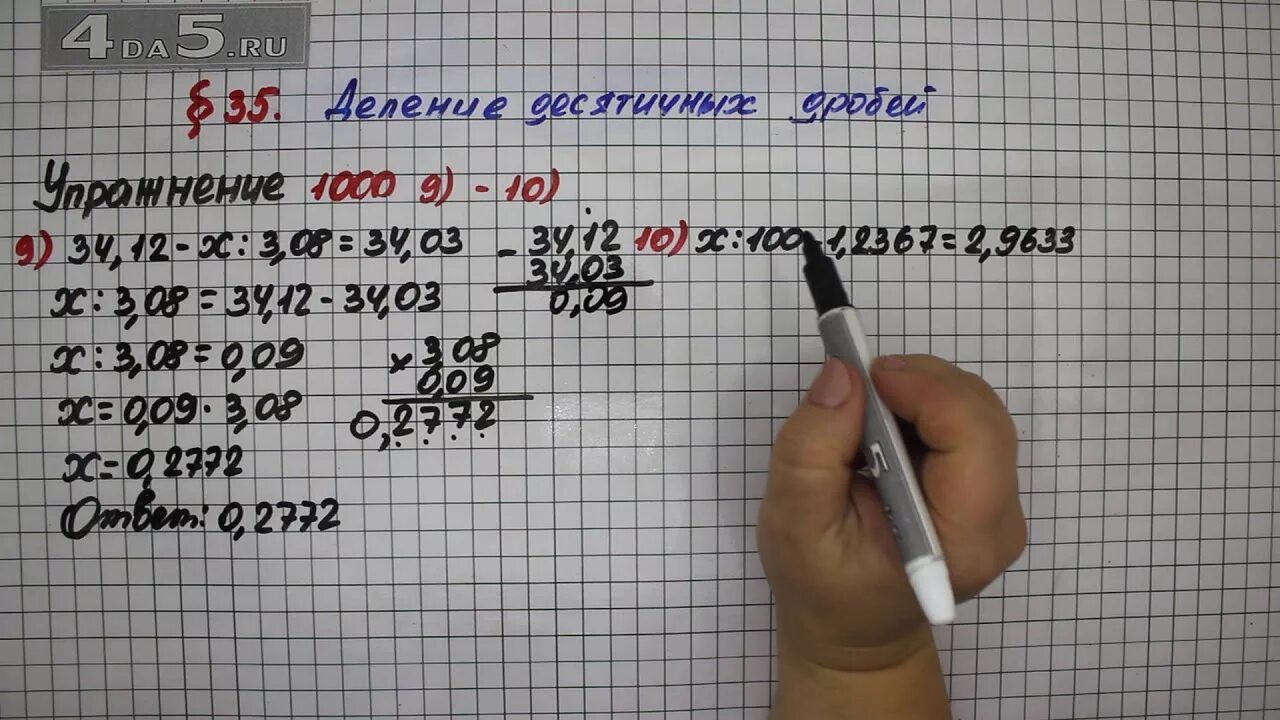 4DA5.RU
§ 35. Деление десятичных дробей
Упражнение 1000 9) - 10)
9) 34,12 - x : 3,08 = 34,03
x : 3,08 = 34,12 - 34,03
x : 3,08 = 0,09
x = 0,09 · 3,08
x = 0,2772
Ответ: 0,2772
- 34,12
34,03
0,09
× 3,08
0,09
0,2772
10) x : 100 - 1,2367 = 2,9633